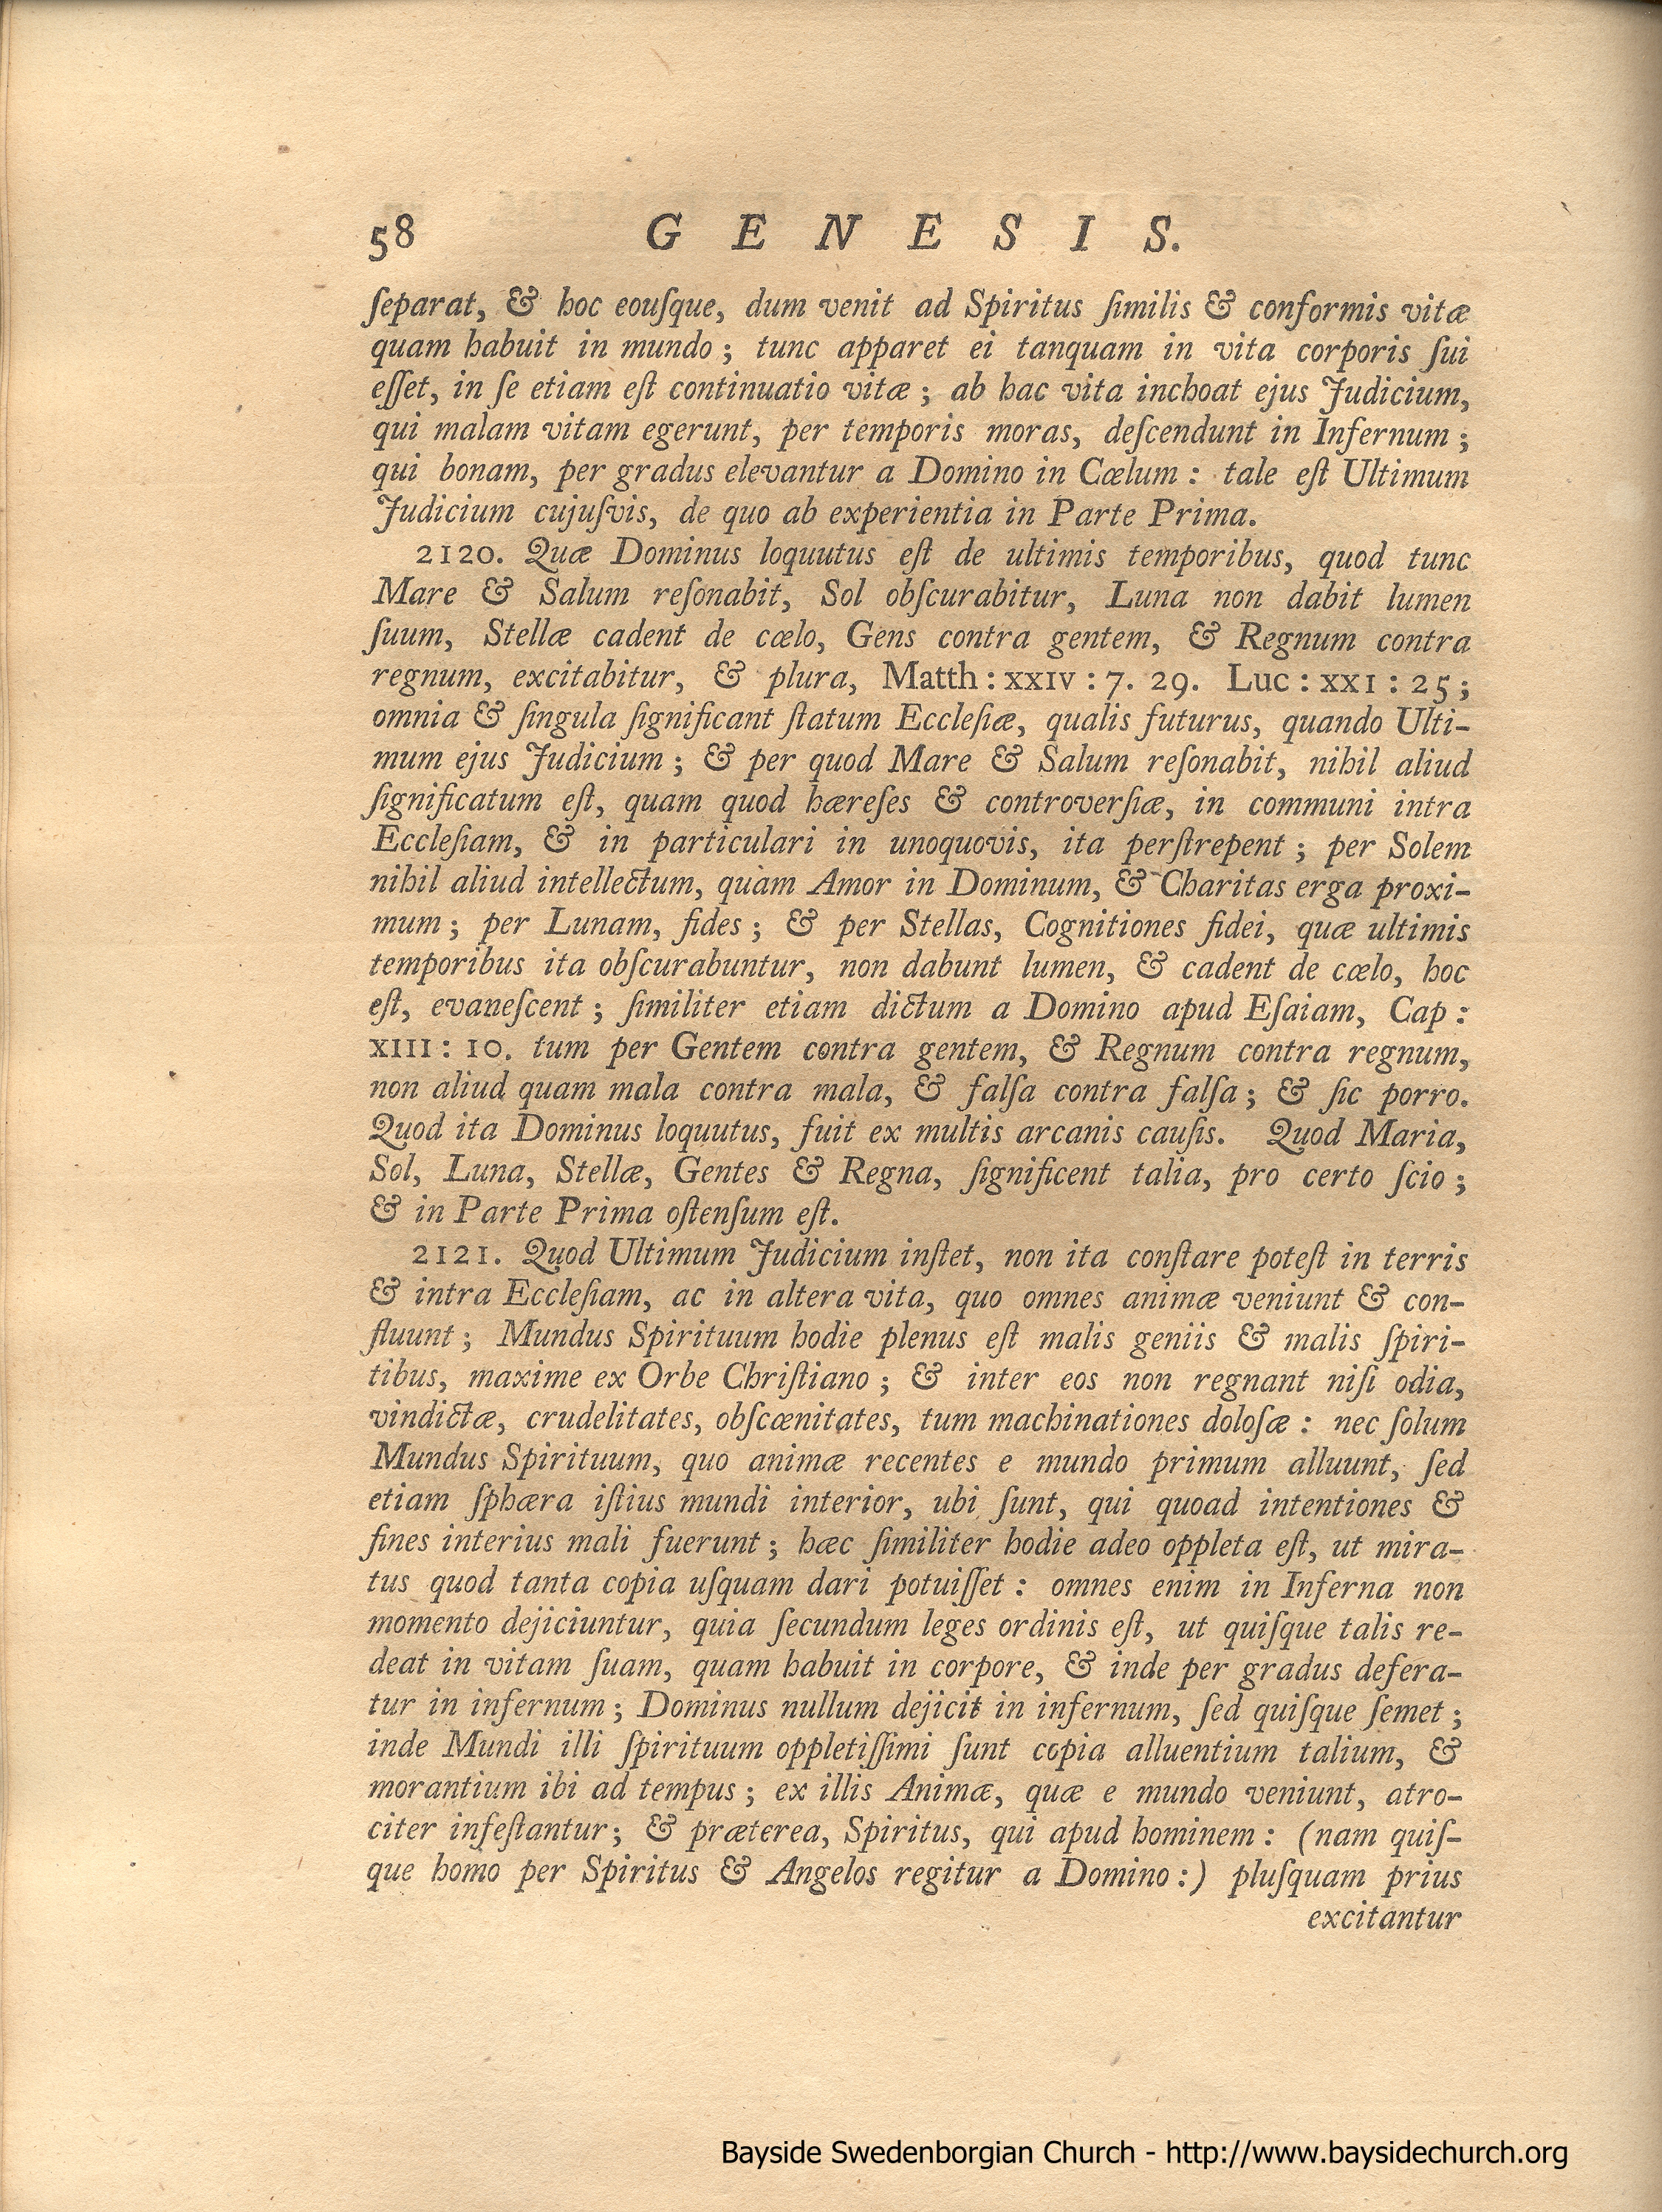 58 G E N E S I S.
ſeparat, & hoc eouſque, dum venit ad Spiritus ſimilis & conformis vitæ
quam habuit in mundo ; tunc apparet ei tanquam in vita corporis ſui
eſſet, in ſe etiam eſt continuatio vitæ ; ab hac vita inchoat ejus Judicium,
qui malam vitam egerunt, per temporis moras, deſcendunt in Infernum ;
qui bonam, per gradus elevantur a Domino in Cœlum : tale eſt Ultimum
Judicium cujuſvis, de quo ab experientia in Parte Prima.
2120. Quæ Dominus loquutus eſt de ultimis temporibus, quod tunc
Mare & Salum reſonabit, Sol obſcurabitur, Luna non dabit lumen
ſuum, Stellæ cadent de cœlo, Gens contra gentem, & Regnum contra
regnum, excitabitur, & plura, Matth : XXIV : 7. 29. Luc : XXI : 25 ;
omnia & ſingula ſignificant ſtatum Eccleſiæ, qualis futurus, quando Ulti-
mum ejus Judicium ; & per quod Mare & Salum reſonabit, nihil aliud
ſignificatum eſt, quam quod hæreſes & controverſiæ, in communi intra
Eccleſiam, & in particulari in unoquovis, ita perſtrepent ; per Solem
nihil aliud intellectum, quàm Amor in Dominum, & Charitas erga proxi-
mum ; per Lunam, fides ; & per Stellas, Cognitiones fidei, quæ ultimis
temporibus ita obſcurabuntur, non dabunt lumen, & cadent de cœlo, hoc
eſt, evaneſcent ; ſimiliter etiam dictum a Domino apud Eſaiam, Cap :
XIII : 10. tum per Gentem contra gentem, & Regnum contra regnum,
non aliud quam mala contra mala, & falſa contra falſa ; & ſic porro.
Quod ita Dominus loquutus, fuit ex multis arcanis cauſis. Quod Maria,
Sol, Luna, Stellæ, Gentes & Regna, ſignificent talia, pro certo ſcio ;
& in Parte Prima oſtenſum eſt.
2121. Quod Ultimum Judicium inſtet, non ita conſtare poteſt in terris
& intra Eccleſiam, ac in altera vita, quo omnes animæ veniunt & con-
fluunt ; Mundus Spirituum hodie plenus eſt malis geniis & malis ſpiri-
tibus, maxime ex Orbe Chriſtiano ; & inter eos non regnant niſi odia,
vindictæ, crudelitates, obſcœnitates, tum machinationes doloſæ : nec ſolum
Mundus Spirituum, quo animæ recentes e mundo primum alluunt, ſed
etiam ſphæra iſtius mundi interior, ubi ſunt, qui quoad intentiones &
fines interius mali fuerunt ; hæc ſimiliter hodie adeo oppleta eſt, ut mira-
tus quod tanta copia uſquam dari potuiſſet : omnes enim in Inferna non
momento dejiciuntur, quia ſecundum leges ordinis eſt, ut quiſque talis re-
deat in vitam ſuam, quam habuit in corpore, & inde per gradus defera-
tur in infernum ; Dominus nullum dejicit in infernum, ſed quiſque ſemet ;
inde Mundi illi ſpirituum oppletiſſimi ſunt copia alluentium talium, &
morantium ibi ad tempus ; ex illis Animæ, quæ e mundo veniunt, atro-
citer infeſtantur ; & præterea, Spiritus, qui apud hominem : (nam quiſ-
que homo per Spiritus & Angelos regitur a Domino :) pluſquam prius
excitantur
Bayside Swedenborgian Church - http://www.baysidechurch.org